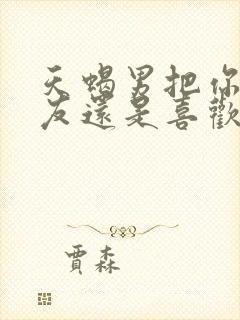 天蝎男把你
友還是喜歡
賈森